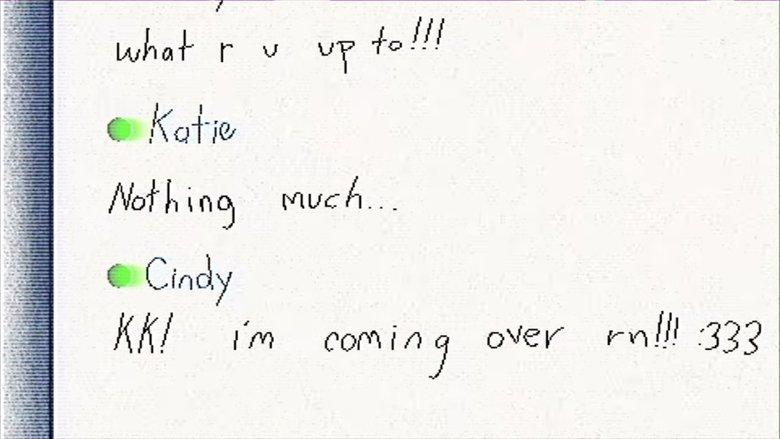 what r u up to!!!
Katie
Nothing much...
Cindy
KK! i'm coming over rn!!! :333